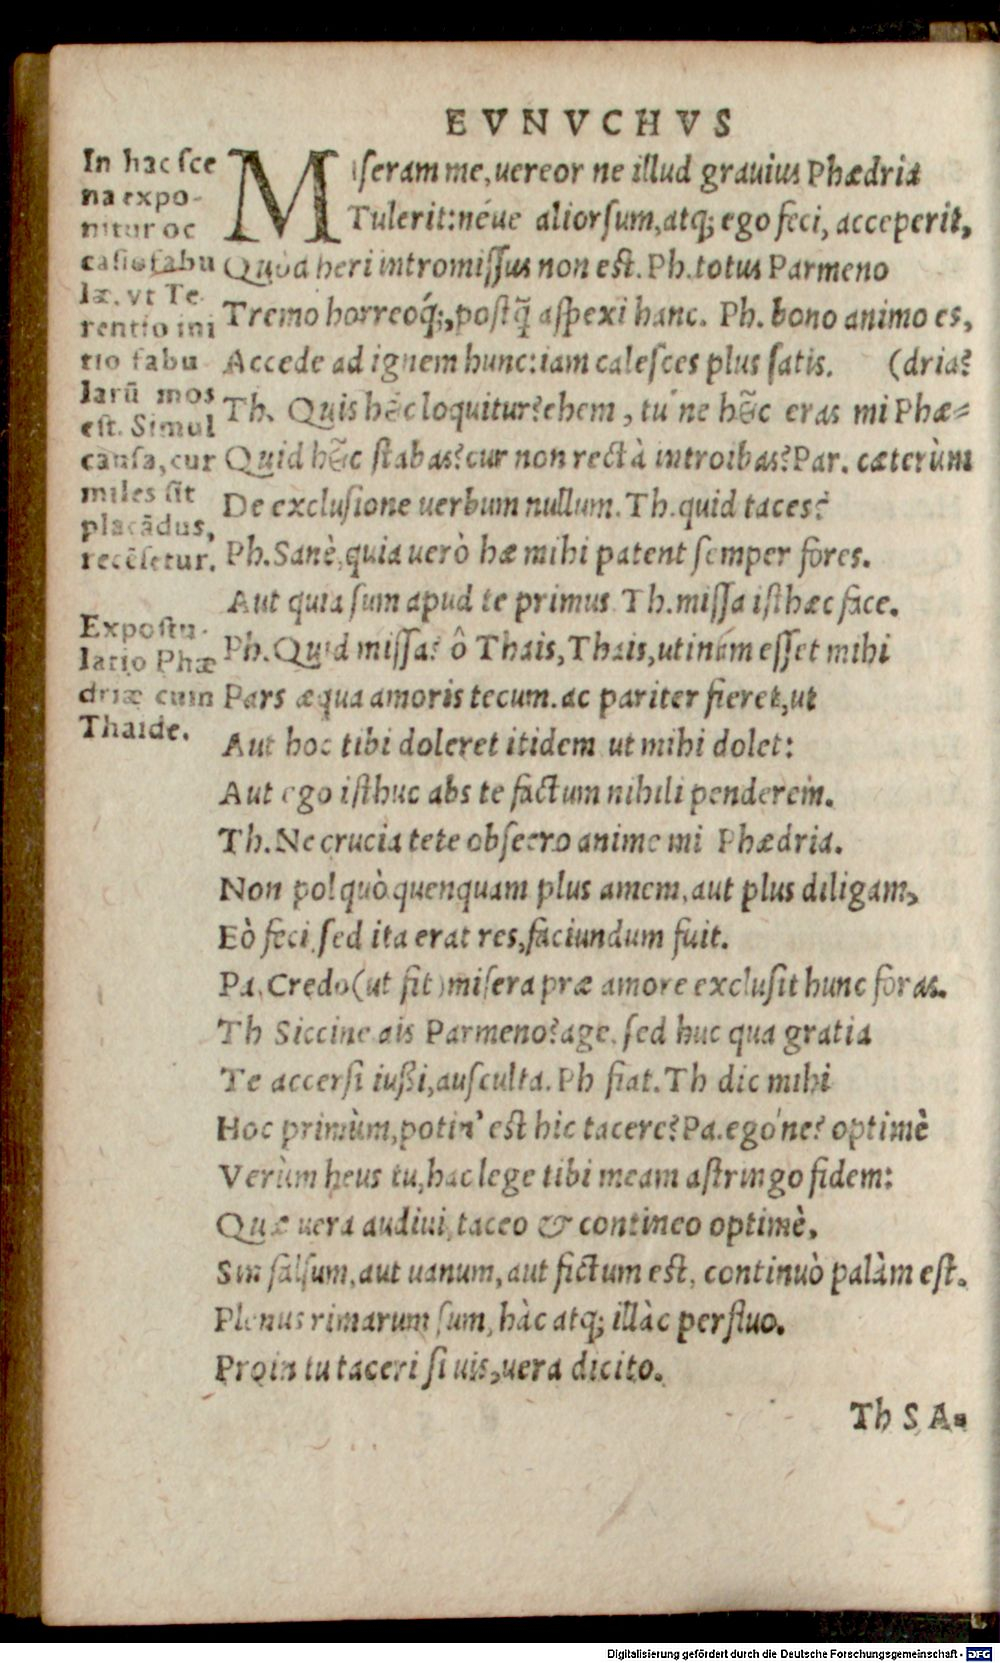 EVNVCHVS
In hac sce
na expo-
nitur oc
casio fabu
læ. vt Te
rentio ini
tio fabu
larũ mos
est. Simul
causa, cur
miles sit
placãdus,
recẽsetur.
Expostu-
latio Phæ
driæ cum
Thaide.
Miseram me, uereor ne illud grauius Phædria
Tulerit: néue aliorsum, atq; ego feci, acceperit,
Quòd heri intromissus non est. Ph. totus Parmeno
Tremo horreoq́;, postq̃ aspexi hanc. Ph. bono animo es,
Accede ad ignem hunc: iam calesces plus satis. (dria?
Th. Quis hĩc loquitur? ehem, tu´ne hĩc eras mi Phæ=
Quid hĩc stabas? cur non rectà introibas? Par. cæterùm
De exclusione uerbum nullum. Th. quid taces?
Ph. Sanè, quia uerò hæ mihi patent semper fores.
Aut quia sum apud te primus. Th. missa isthæc face.
Ph. Quid missa? ô Thais, Thais, utinam esset mihi
Pars æqua amoris tecum. ac pariter fieret, ut
Aut hoc tibi doleret itidem ut mihi dolet:
Aut ego isthuc abs te factum nihili penderem.
Th. Ne crucia te te obsecro anime mi Phædria.
Non pol quò quenquam plus amem, aut plus diligam,
Eò feci, sed ita erat res, faciundum fuit.
Pa. Credo (ut fit) misera præ amore exclusit hunc foras.
Th Siccine ais Parmeno? age. sed huc qua gratia
Te accersi iußi, ausculta. Ph fiat. Th dic mihi
Hoc primùm, potin' est hic tacere? Pa. egóne? optimè
Verùm heus tu, hac lege tibi meam astringo fidem:
Quæ uera audiui, taceo & contineo optimè,
Sin falsum, aut uanum, aut fictum est, continuò palàm est.
Plenus rimarum sum, hàc atq; illàc perfluo.
Proin tu taceri si uis, uera dicito.
Th SA=
Digitalisierung gefördert durch die Deutsche Forschungsgemeinschaft - DFG